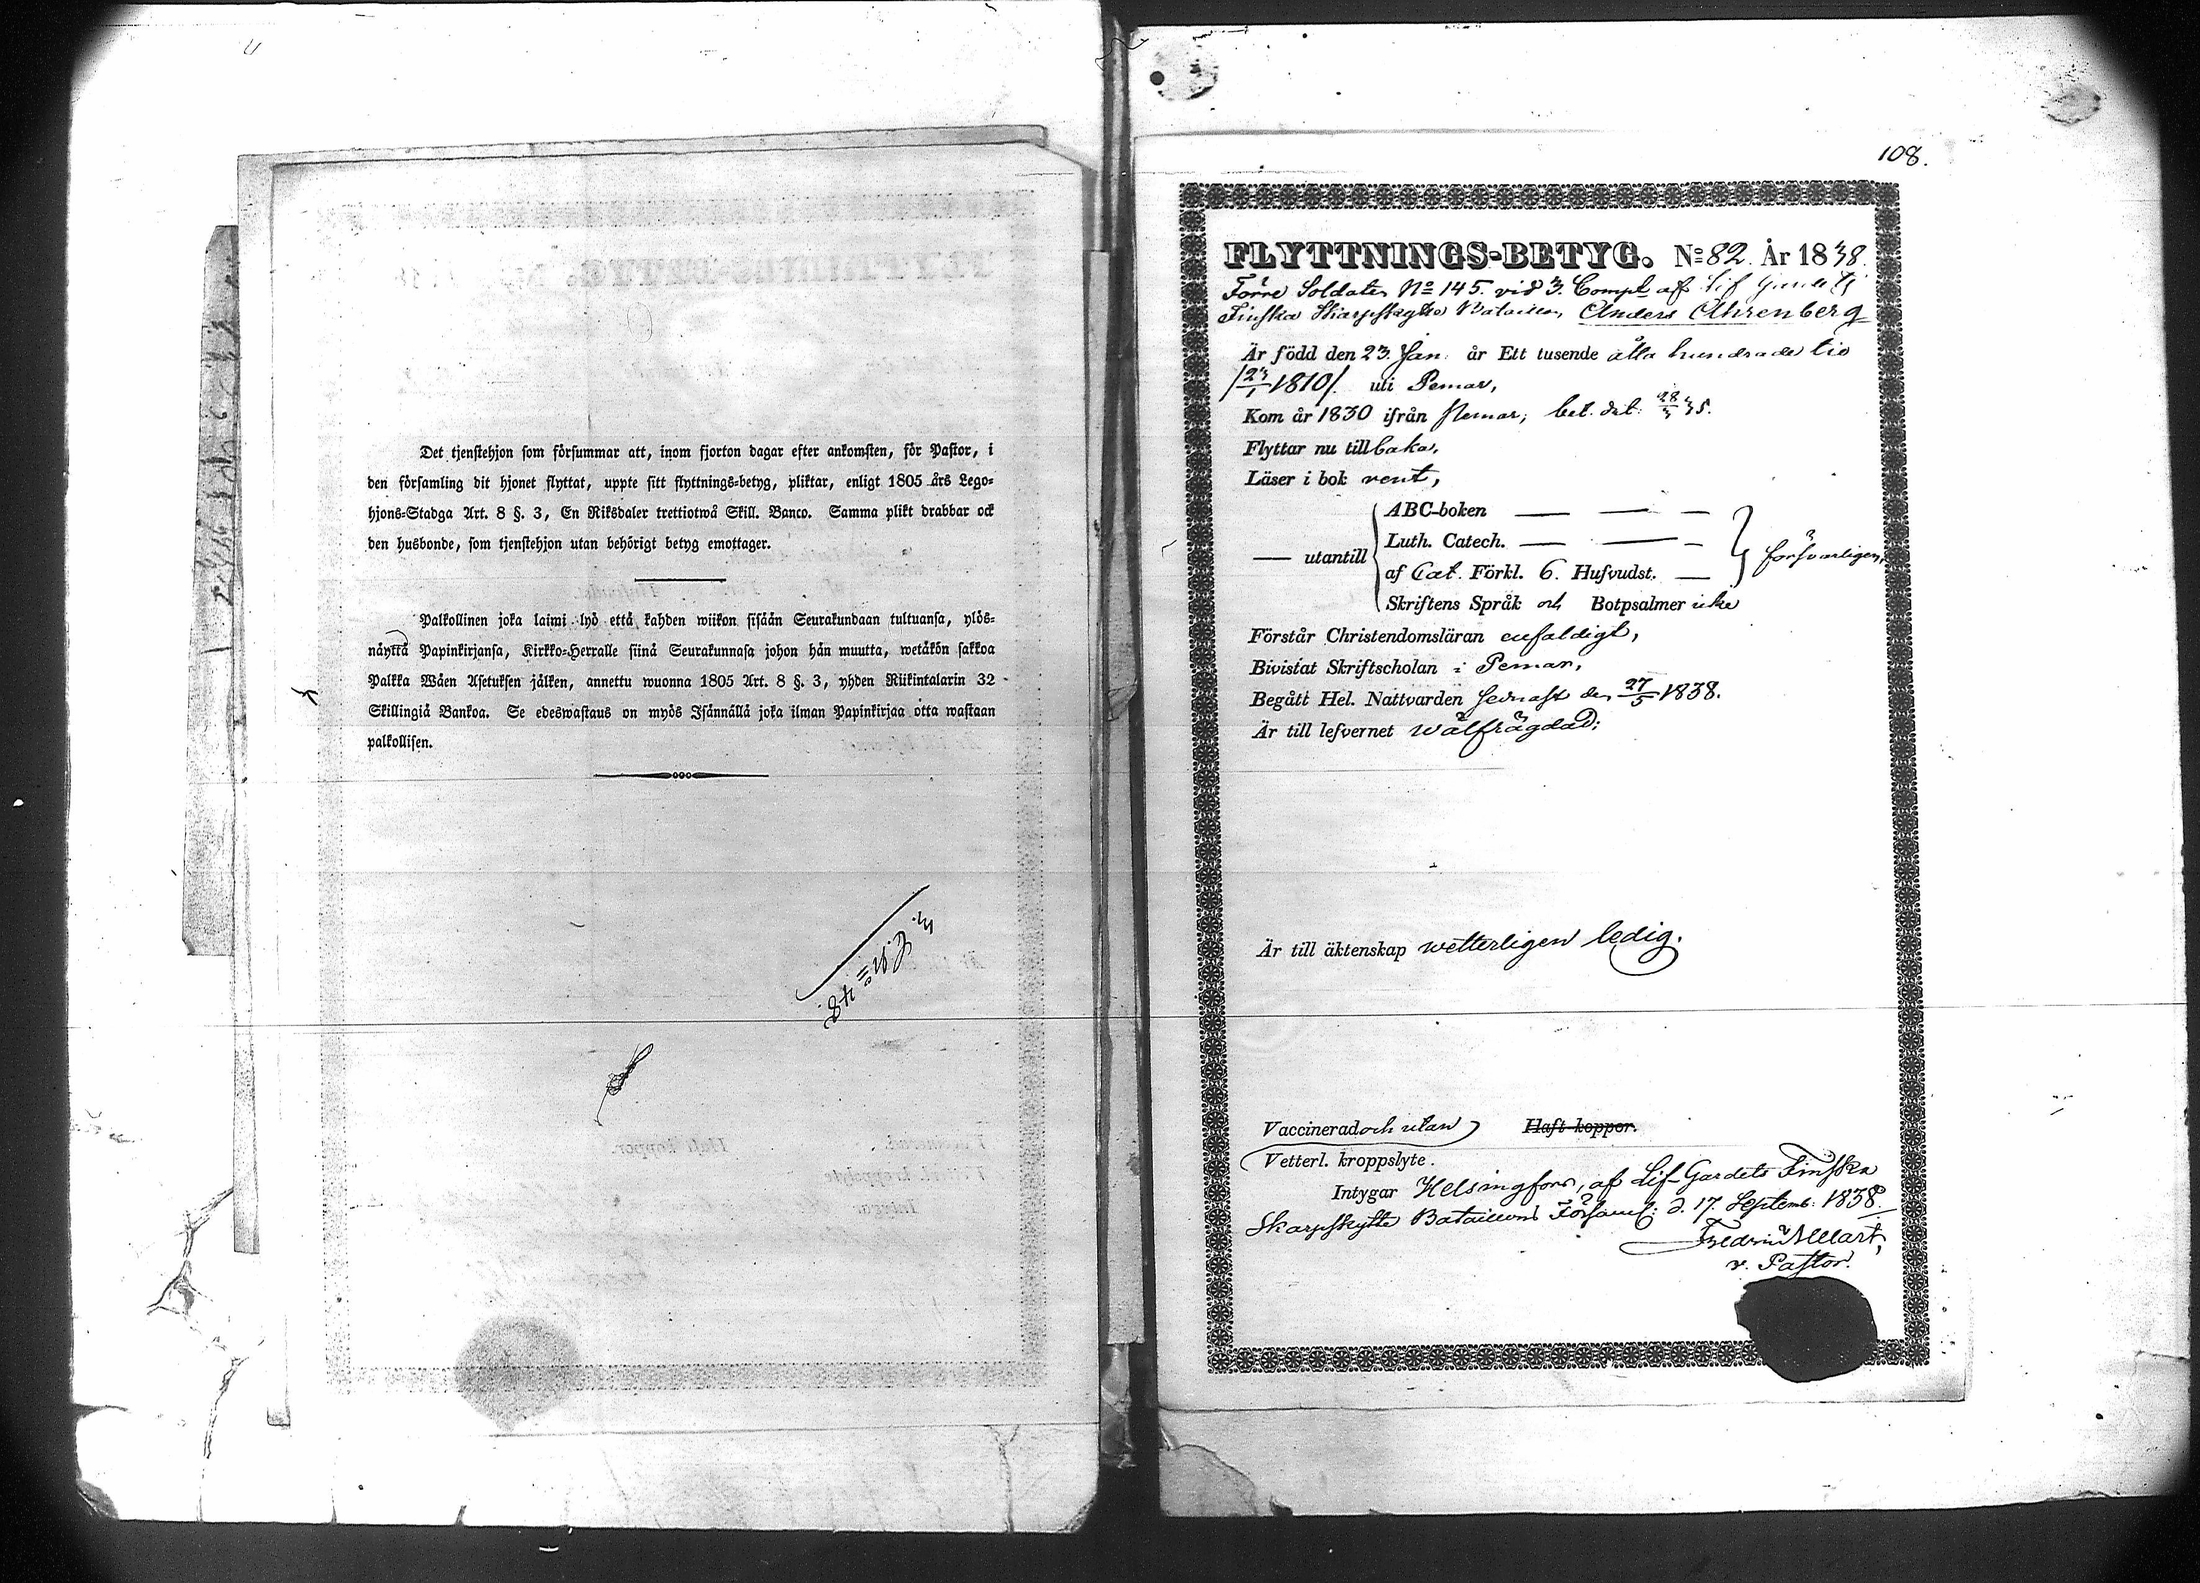 Det tjenstehjon som försummar att, inom fjorton dagar efter ankomsten, för Pastor, i
den församling dit hjonet flyttat, uppte sitt flyttnings-betyg, pliktar, enligt 1805 års Lego-
hjons-Stadga Art. 8 §. 3, En Riksdaler trettiotwå Skill. Banco. Samma plikt drabbar ock
den husbonde, som tjenstehjon utan behörigt betyg emottager.
Palkollinen joka laimi lyö että kahden wiikon sisään Seurakundaan tultuansa, ylös-
näyttä Papinkirjansa, Kirkko-Herralle siinä Seurakunnasa johon hän muutta, wetäkön sakkoa
Palkka Wäen Asetuksen jälken, annettu wuonna 1805 Art. 8 §. 3, yhden Riikintalarin 32
Skillingiä Bankoa. Se edeswastaus on myös Isännällä joka ilman Papinkirjaa otta wastaan
palkollisen.
108.
FLYTTNINGS-BETYG. No 82. År 1838.
Förre Soldaten No 145. vid 3. Comp. af Lif Gardets
Finska Skarpskytte Bataillon, Anders Ahrenberg
Är född den 23. Jan. år Ett tusende åtta hundrade tio
/23/1 1810/. uti Pemar,
Kom år 1830 ifrån Pemar, bet. dat. 28/3 35.
Flyttar nu tillbaka,
Läser i bok rent,
ABC-boken
Luth. Catech.
— utantill
af Cat. Förkl. 6. Hufvudst.
försvarligen,
Skriftens Språk och Botpsalmer icke
Förstår Christendomsläran enfaldigt,
Bivistat Skriftscholan i Pemar,
Begått Hel. Nattvarden sednast den 27/5 1838.
Är till lefvernet wälfrägdad;
Är till äktenskap wetterligen ledig.
Vaccinerad och utan Haft koppor.
Vetterl. kroppslyte.
Intygar Helsingfors, af Lif-Gardets Finska
Skarpskytte Bataillons Församl: d. 17. Septemb. 1838.
v. Pastor.